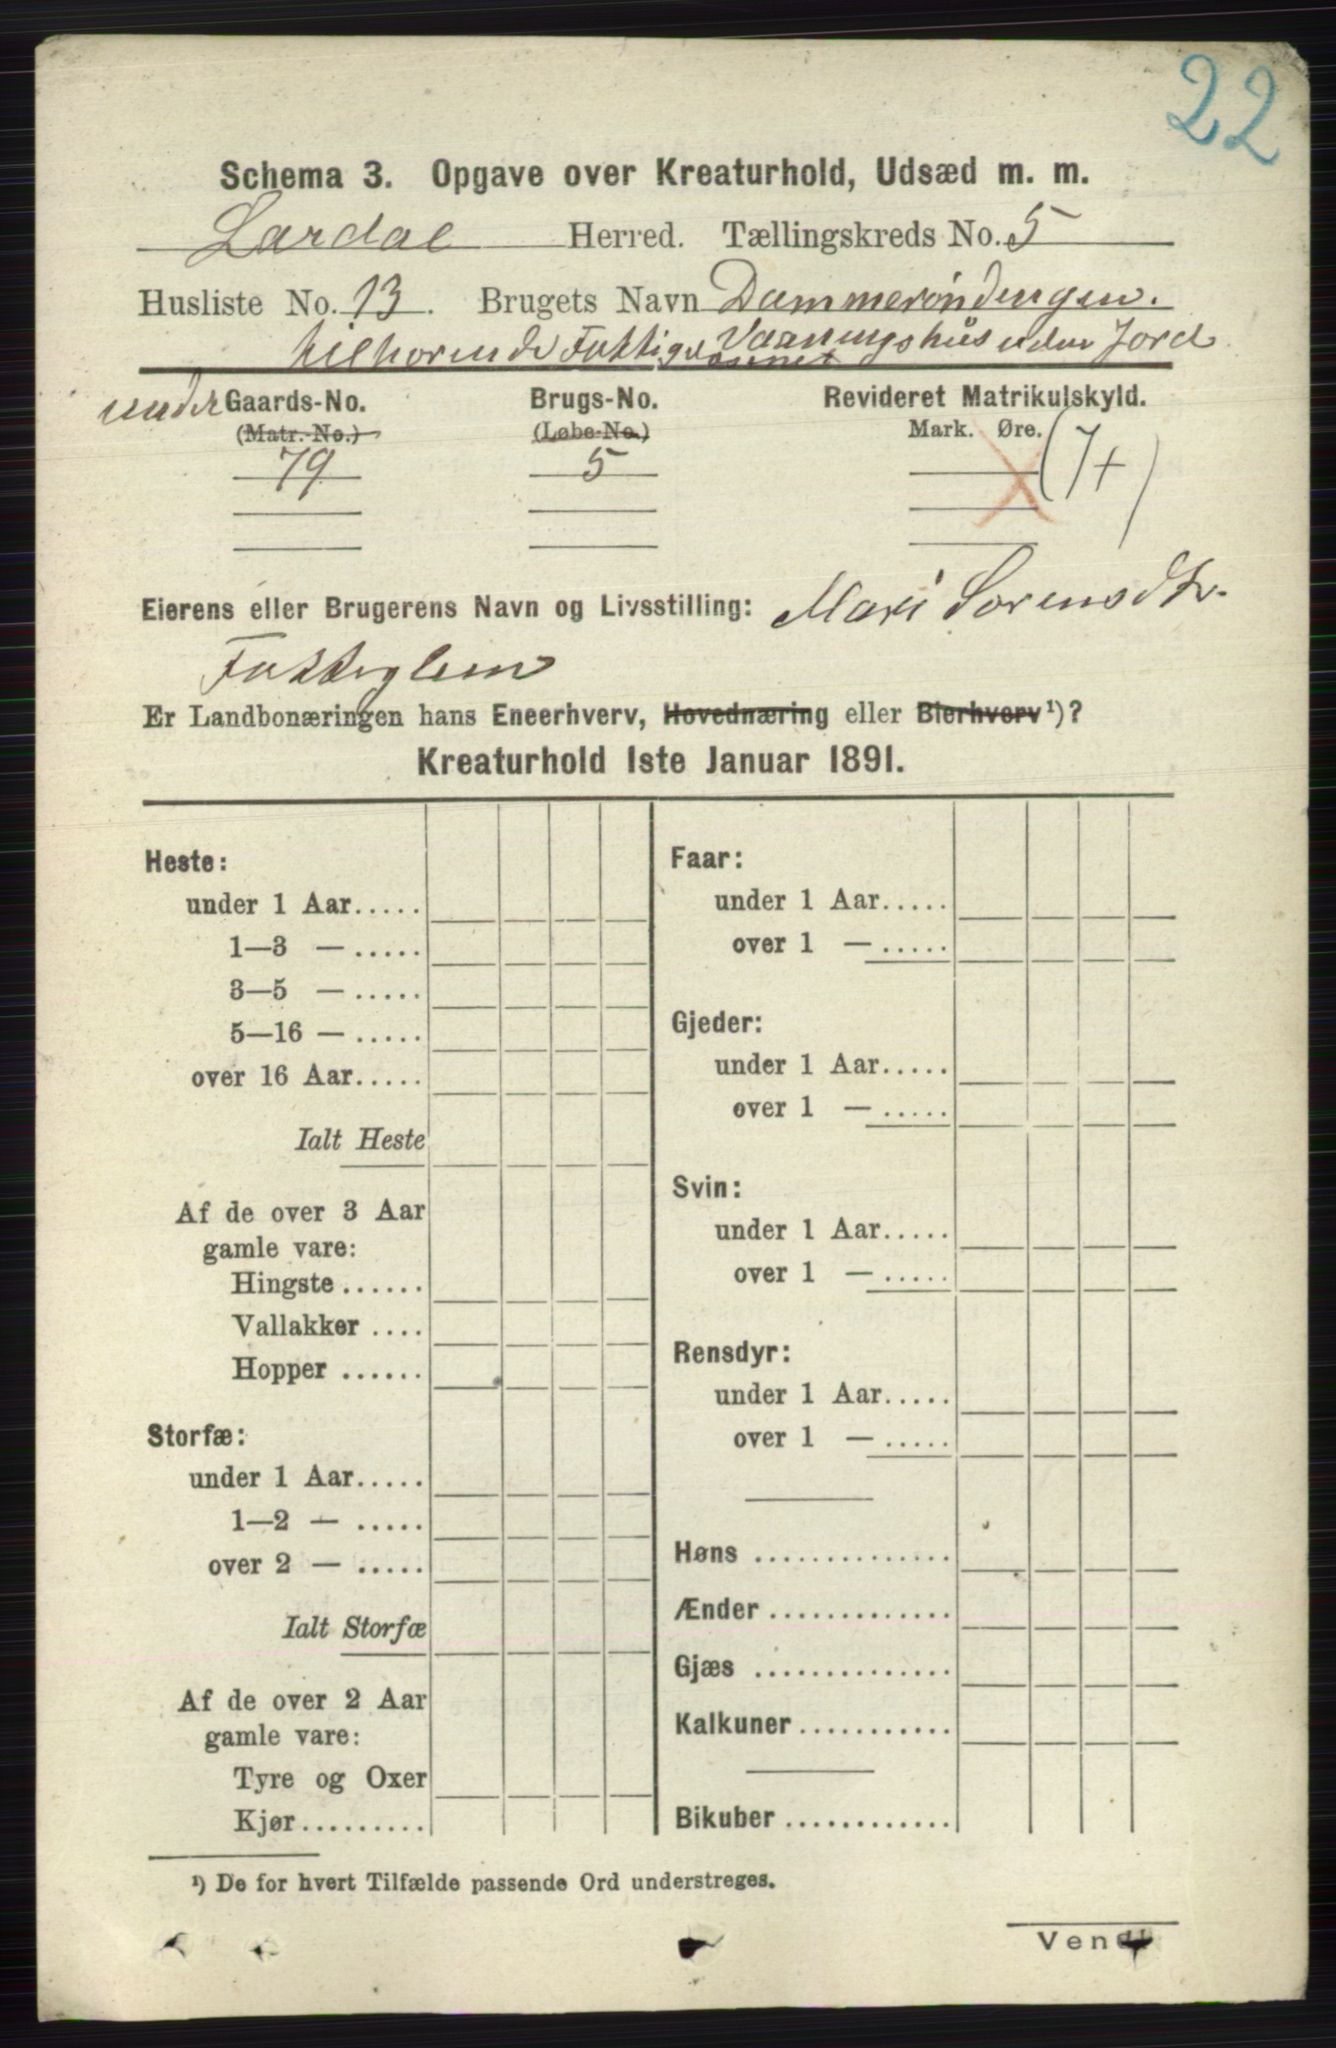 22
Schema 3. Opgave over Kreaturhold, Udsæd m. m.
Lardal Herred. Tællingskreds No. 5
Husliste No. 13. Brugets Navn Dammerøndingen.
tilhørende Fattigvæsenet Vaaningshus uden Jord
under Gaards-No. Brugs-No. Revideret Matrikulskyld.
(Matr.-No.) (Løbe-No.) Mark. Øre.
79 5 (7+)
Eierens eller Brugerens Navn og Livsstilling: Mari Sørensdtr.
Fattiglem
Er Landbonæringen hans Eneerhverv, Hovednæring eller Bierhverv ¹)?
Kreaturhold 1ste Januar 1891.
Heste:
under 1 Aar.....
1—3 — .....
3—5 — .....
5—16 — .....
over 16 Aar.....
Ialt Heste
Af de over 3 Aar
gamle vare:
Hingste ......
Vallakker ....
Hopper ......
Storfæ:
under 1 Aar.....
1—2 — .....
over 2 — .....
Ialt Storfæ
Af de over 2 Aar
gamle vare:
Tyre og Oxer
Kjør.........
Faar:
under 1 Aar.....
over 1 — .....
Gjeder:
under 1 Aar.....
over 1 — .....
Svin:
under 1 Aar.....
over 1 — .....
Rensdyr:
under 1 Aar.....
over 1 — .....
Høns ..............
Ænder .............
Gjæs ..............
Kalkuner...........
Bikuber ............
¹) De for hvert Tilfælde passende Ord understreges.
Vend!